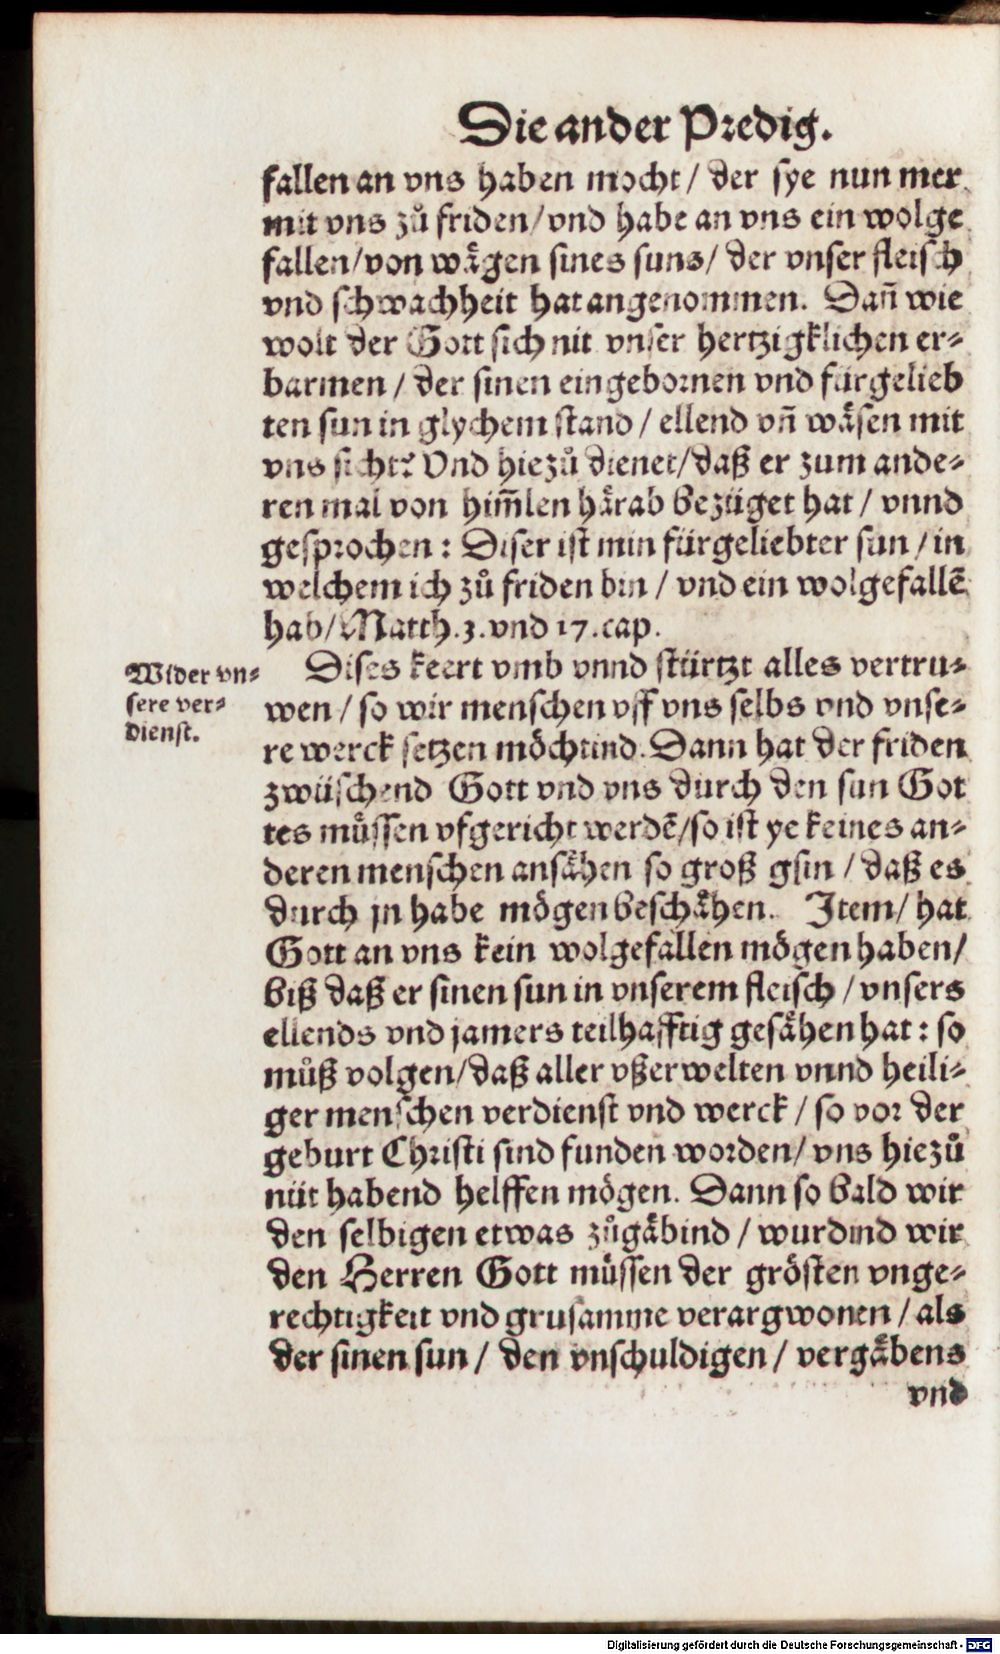 Die ander Predig.
fallen an vns haben mocht / der sye nun mer
mit vns zů friden / vnd habe an vns ein wolge
fallen / von wågen sines suns / der vnser fleisch
vnd schwachheit hat angenommen. Dañ wie
wolt der Gott sich nit vnser hertzigklichen er-
barmen / der sinen eingebornen vnd fürgelieb
ten sun in glychem stand / ellend vñ wäsen mit
vns sicht? Vnd hiezů dienet / daß er zum ande-
ren mal von him̃len härab bezüget hat / vnnd
gesprochen : Diser ist min fürgeliebter sun / in
welchem ich zů friden bin / vnd ein wolgefallẽ
hab / Matth. 3. vnd 17. cap.
Dises keert vmb vnnd stürtzt alles vertru-
Wider vn-
sere ver-
dienst.
wen / so wir menschen vff vns selbs vnd vnse-
re werck setzen möchtind. Dann hat der friden
zwüschend Gott vnd vns durch den sun Got
tes müssen vfgericht werdẽ / so ist ye keines an-
deren menschen ansähen so groß gsin / daß es
durch jn habe mögen beschähen. Item / hat
Gott an vns kein wolgefallen mögen haben /
biß daß er sinen sun in vnserem fleisch / vnsers
ellends vnd jamers teilhafftig gesähen hat : so
můß volgen / daß aller vßerwelten vnnd heili-
ger menschen verdienst vnd werck / so vor der
geburt Christi sind funden worden / vns hiezů
nüt habend helffen mögen. Dann so bald wir
den selbigen etwas zůgäbind / wurdind wir
den Herren Gott müssen der grösten vnge-
rechtigkeit vnd grusamme verargwonen / als
der sinen sun / den vnschuldigen / vergäbens
vnd
Digitalisierung gefördert durch die Deutsche Forschungsgemeinschaft - DFG